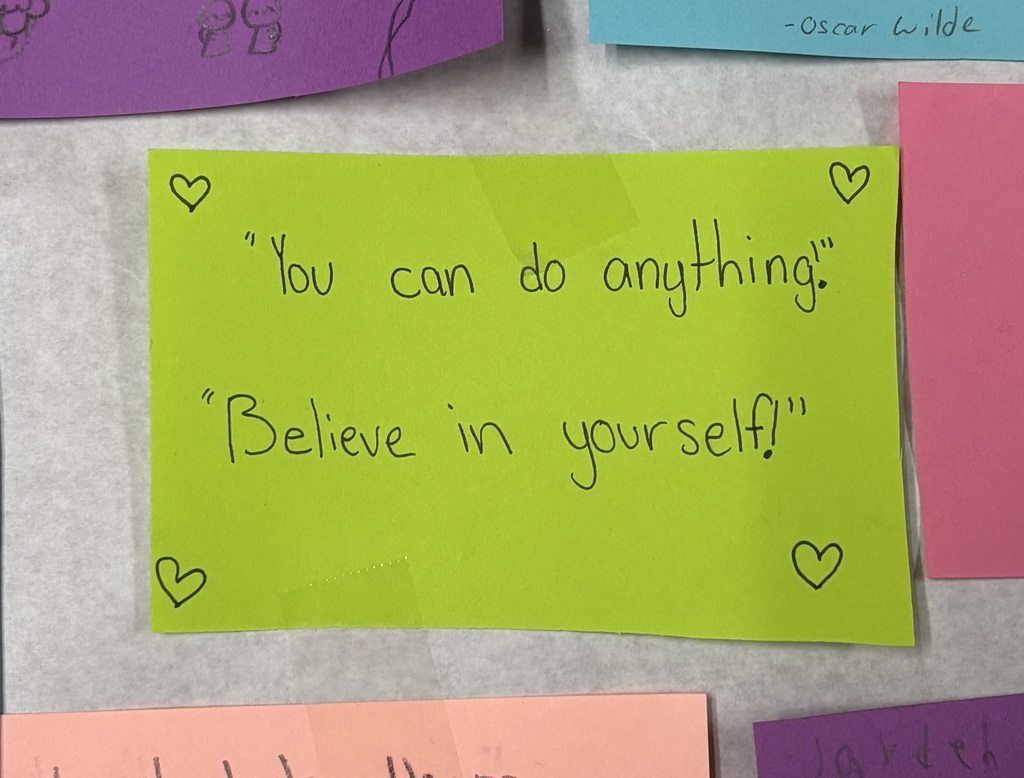 -Oscar Wilde
"You can do anything!"
"Believe in yourself!"